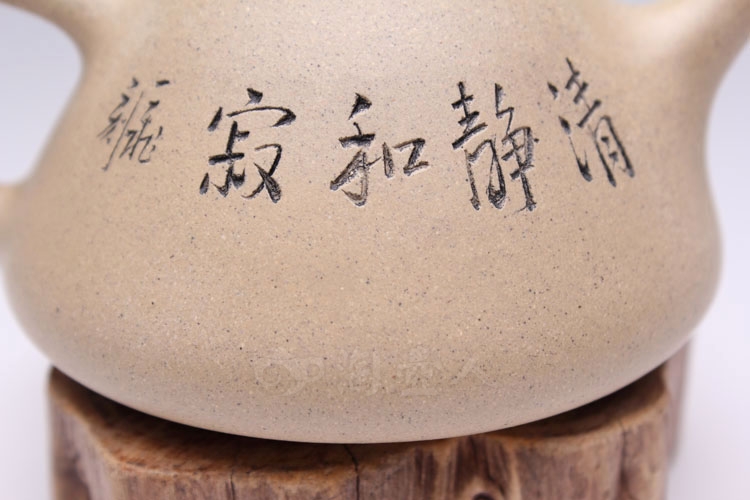 清静和寂